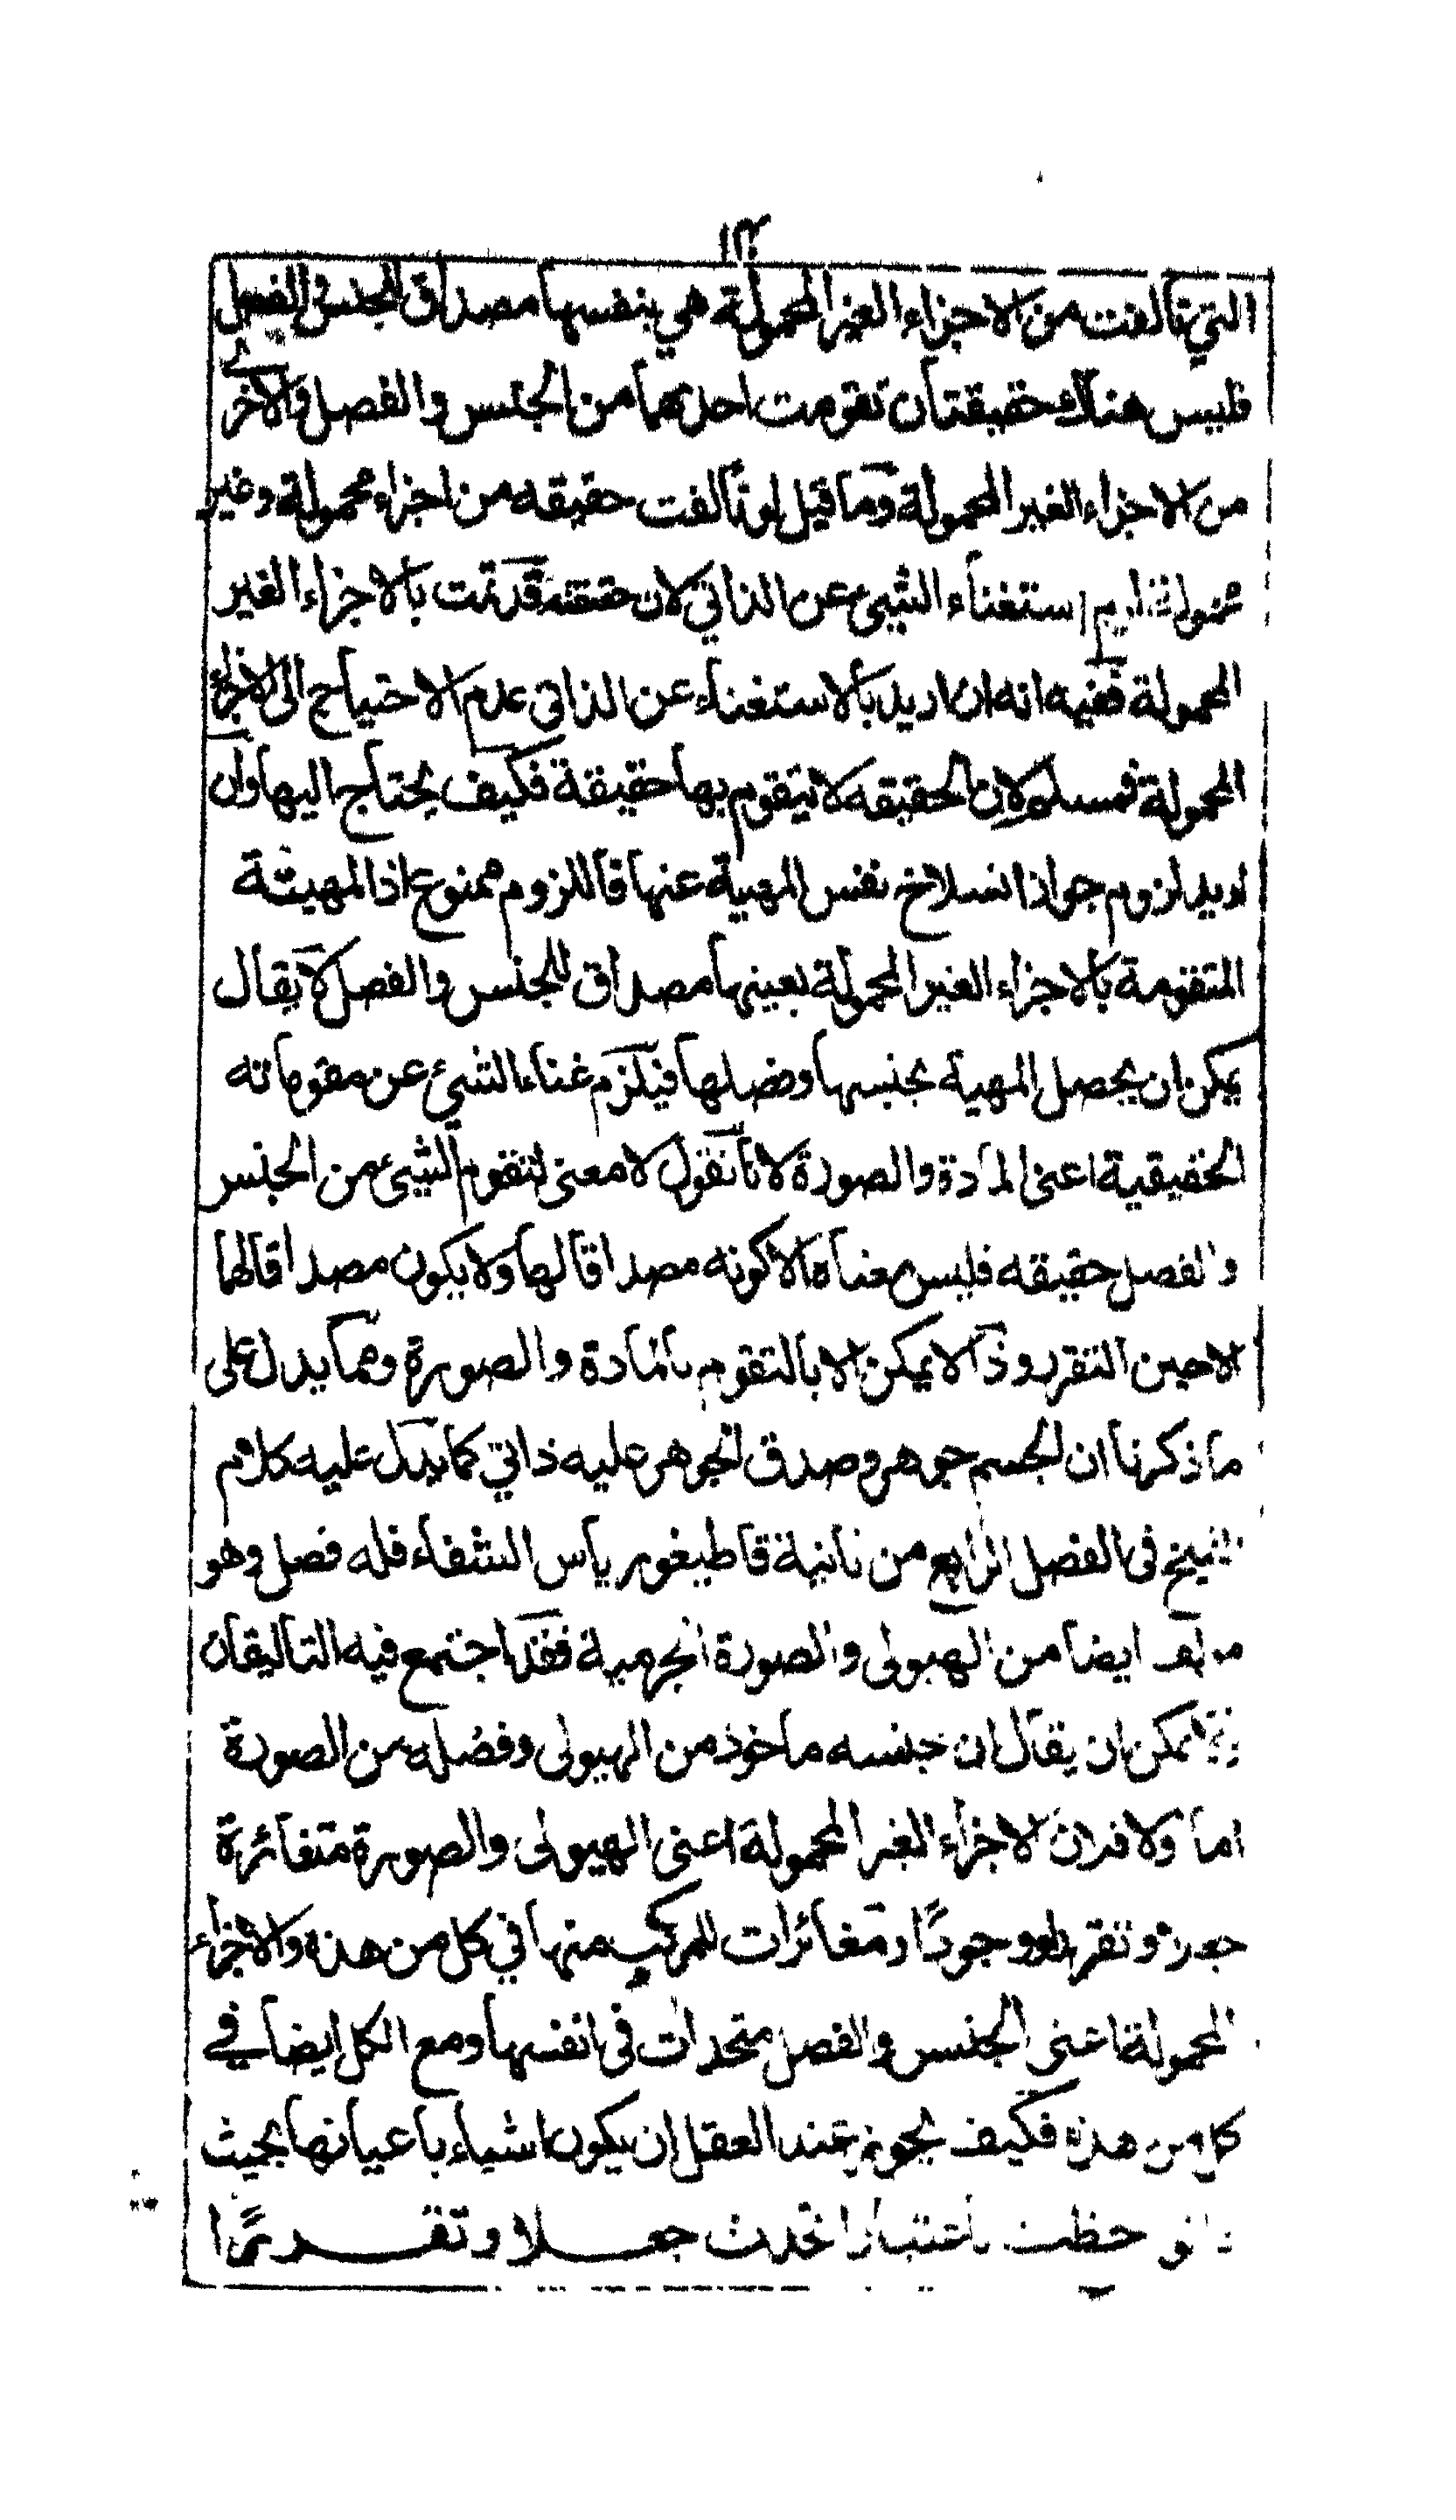 ١٣
التي تألفت من الاجزاء الغير المحمولة هي بنفسها مصداق للجنس والفصل
فليس هناك حقيقتان تقومت احدهما من الجنس والفصل والاخرى
من الاجزاء الغير المحمولة وما قيل لو تألفت حقيقه من اجزاء محمولة وغير
محمولة لزم استغناء الشيئ عن الذاتي لان حقيقته قد تمت بالاجزاء الغير
المحمولة ففيه انه ان اريد بالاستغناء عن الذاتي عدم الاحتياج الى الاجزاء
المحمولة فمسلم لان الحقيقه لا تتقوم بها حقيقة فكيف يحتاج اليها وان
اريد لزوم جواز انسلاخ نفس المهية عنها فاللزوم ممنوع اذ المهية
المتقومة بالاجزاء الغير المحمولة بعينها مصداق للجنس والفصل لا يقال
يمكن ان يحصل المهية بجنسها وفصلها فيلزم غناء الشيئ عن مقوماته
الحقيقية اعنى المادة والصورة لانا نقول لا معنى لتقوم الشيئ من الجنس
والفصل حقيقه فليس معناه الا كونه مصداقا لها ولا يكون مصداقا لها
الا حين التقرر وذا لا يمكن الا بالتقوم بالمادة والصورة ومما يدل على
ما ذكرنا ان الجسم جوهر وصدق الجوهر عليه ذاتي كما يدل عليه كلام
الشيخ فى الفصل الرابع من ثانية قاطيغورياس الشفاء فله فصل وهو
مؤلف ايضا من الهيولى والصورة الجرمية فقد اجتمع فيه التاليفان
يمكن ان يقال ان جنسه ماخوذ من الهيولى وفصله من الصورة
اما اولا فلان الاجزاء الغير المحمولة اعنى الهيولى والصورة متغائرة
جعلا وتقررا ووجودًا ومغائرات للمركب منها في كل من هذه والاجزاء
المحمولة اعنى الجنس والفصل متحدات فى انفسها ومع الكل ايضا في
كل من هذه فكيف يجوز عند العقل ان يكون اشياء باعيانها بحيث
لو لوحظت باعتبار اتحدت جعلا وتقررًا